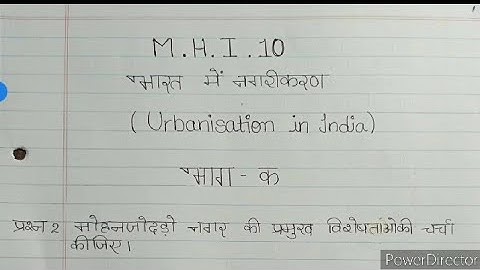 M.H.I.10
भारत में नगरीकरण
(Urbanisation in India)
भाग - क
प्रश्न 2 मोहनजोदड़ो नगर की प्रमुख विशेषताओकी चर्चा
कीजिए।
PowerDirector